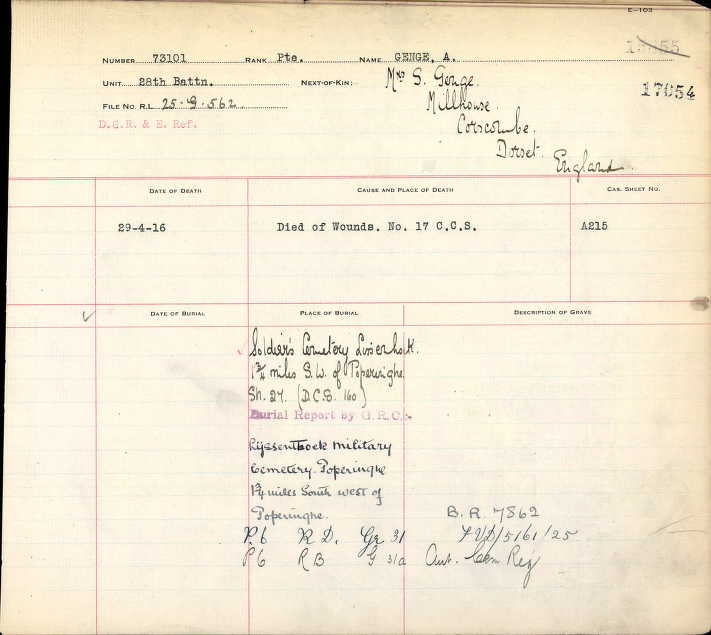 E-103
NUMBER 73101 RANK Pte. NAME GENGE, A.
UNIT 28th Battn. NEXT-OF-KIN: Mrs S. Genge.
Millhouse.
17054
FILE NO. R.L. 25-G-562
Corscombe.
D.G.R. & E. Ref.
Dorset.
England.
DATE OF DEATH CAUSE AND PLACE OF DEATH CAS. SHEET NO.
29-4-16 Died of Wounds. No. 17 C.C.S. A215
DATE OF BURIAL PLACE OF BURIAL DESCRIPTION OF GRAVE
Soldier's Cemetery Lissenhoek.
1 3/4 miles S.W. of Poperinghe
Sh. 27. (D.C.S. 160)
Burial Report by G.R.C.
Lyssenthoek Military
Cemetery. Poperinghe
1 3/4 miles South west of
Poperinghe.
B.R. 7862
P.6 R D. Gr 31
P6 R B G 31a Aut. Cem Reg